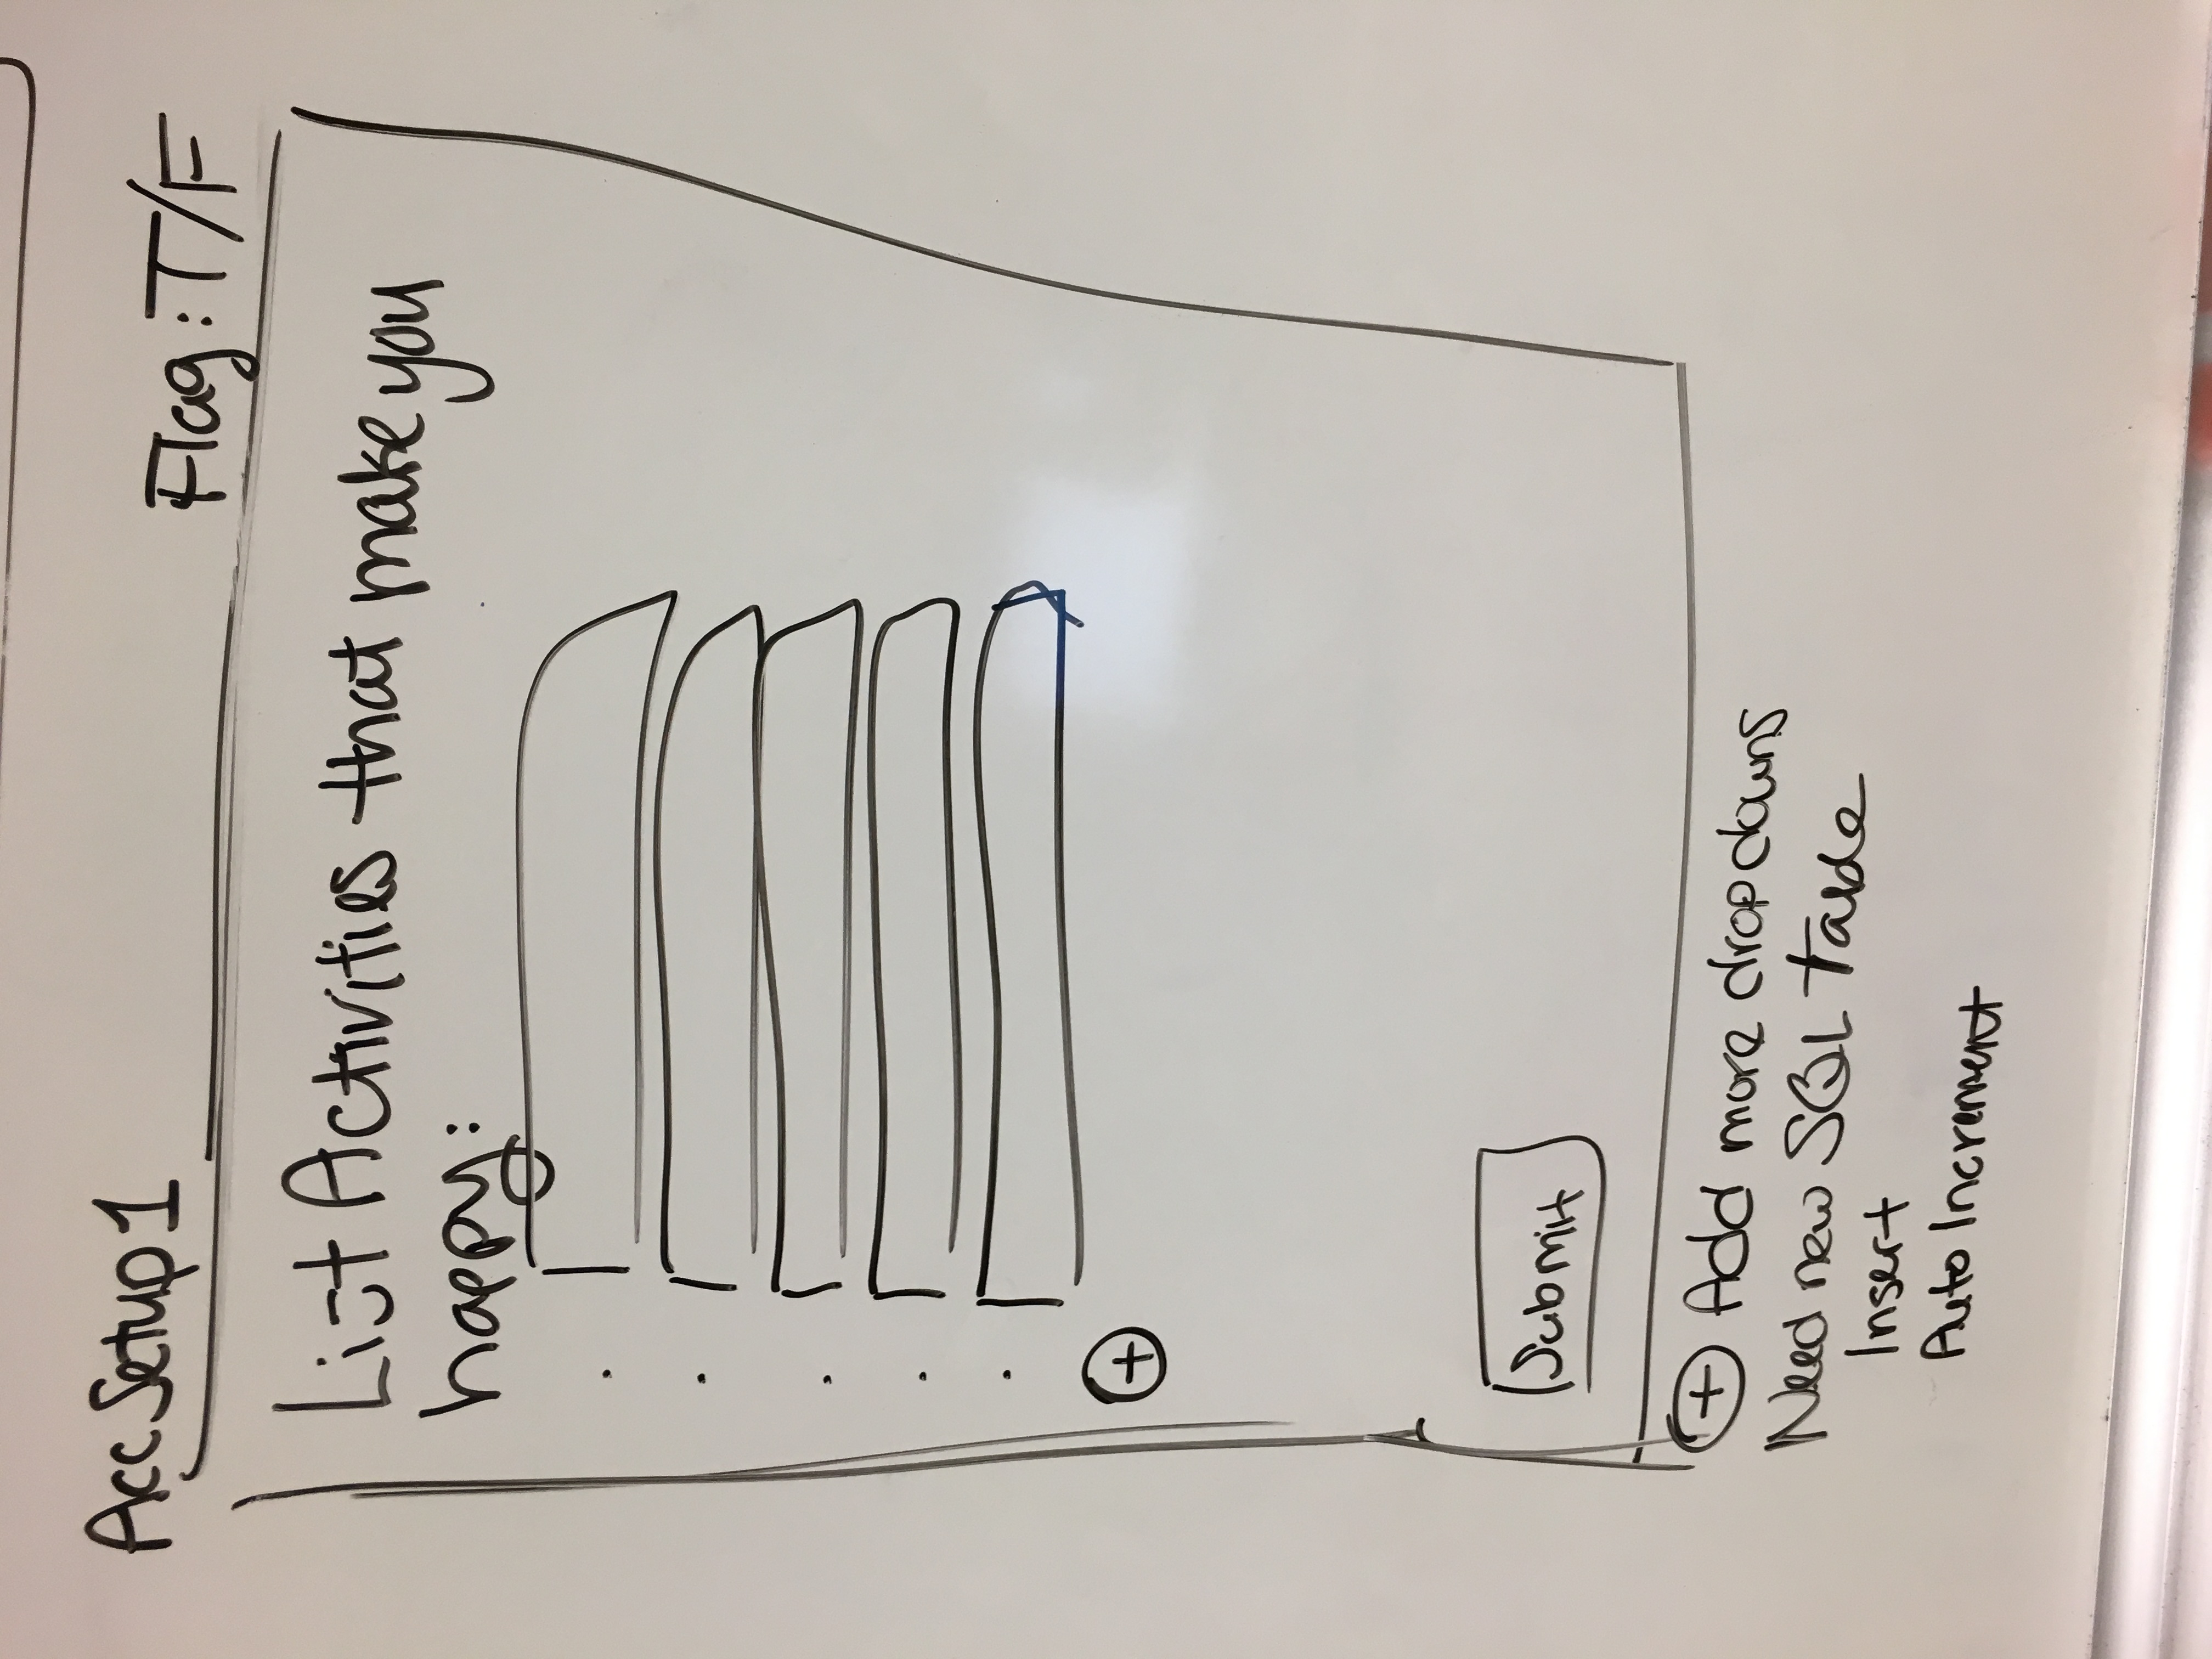 Acc Setup 1
Flag: T/F
List Activities that make you
happy:
+
Submit
+ Add more dropdowns
Need new SQL Table
Insert
Auto Increment